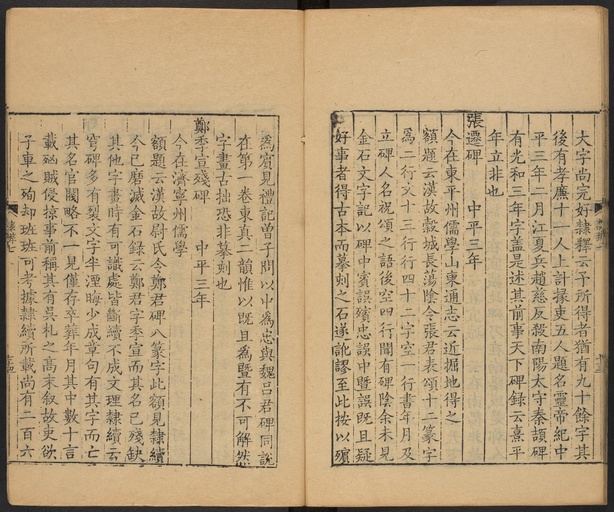 大字尚完好隸釋云予所得者猶有九十餘字其
後有孝廉十一人上計掾吏五人題名靈帝紀中
平三年二月江夏兵趙慈反殺南陽太守秦頡碑
有光和三年字盖是述其前事天下碑錄云熹平
年立非也
張遷碑 中平三年
今在東平州儒學山東通志云近掘地得之
額題云漢故穀城長蕩陰令張君表頌十二篆字
為二行文十三行行四十二字空一行書年月及
立碑人名祝頌之語後空四行間有碑陰余未見
金石文字記以碑中賓誤殯忠誤中暨誤既且疑
好事者得古本而摹刻之石遂訛謬至此按以殯
為賓見禮記曽子問以中為忠與魏吕君碑同說
在第一卷東真二韻惟以既且為暨有不可解然
字畫古拙恐非摹刻也
鄭季宣殘碑 中平三年
今在濟寧州儒學
額題云漢故尉氏令鄭君碑八篆字此額見隸續
今已磨滅金石錄云鄭君字季宣而其名已殘缺
其他字畫時有可識處皆斷續不成文理隸續云
穹碑多有裂文字半湮晦少成章句有其字而亡
其名官閥略不一見僅存卒葬年月其中數十言
載剙賊侵掠事前稱其有吳札之高末叙故吏欲
子車之殉却班班可考據隸續所載尚有二百六